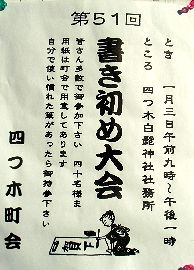 第51回
とき　一月三日午前九時〜午後一時
ところ　四つ木白髭神社社務所
書き初め大会
皆さん多数で御参加下さい　四十名様ま
用紙は町会で用意してあります
自分で使い慣れた筆があったら御持参下さい
四つ木町会